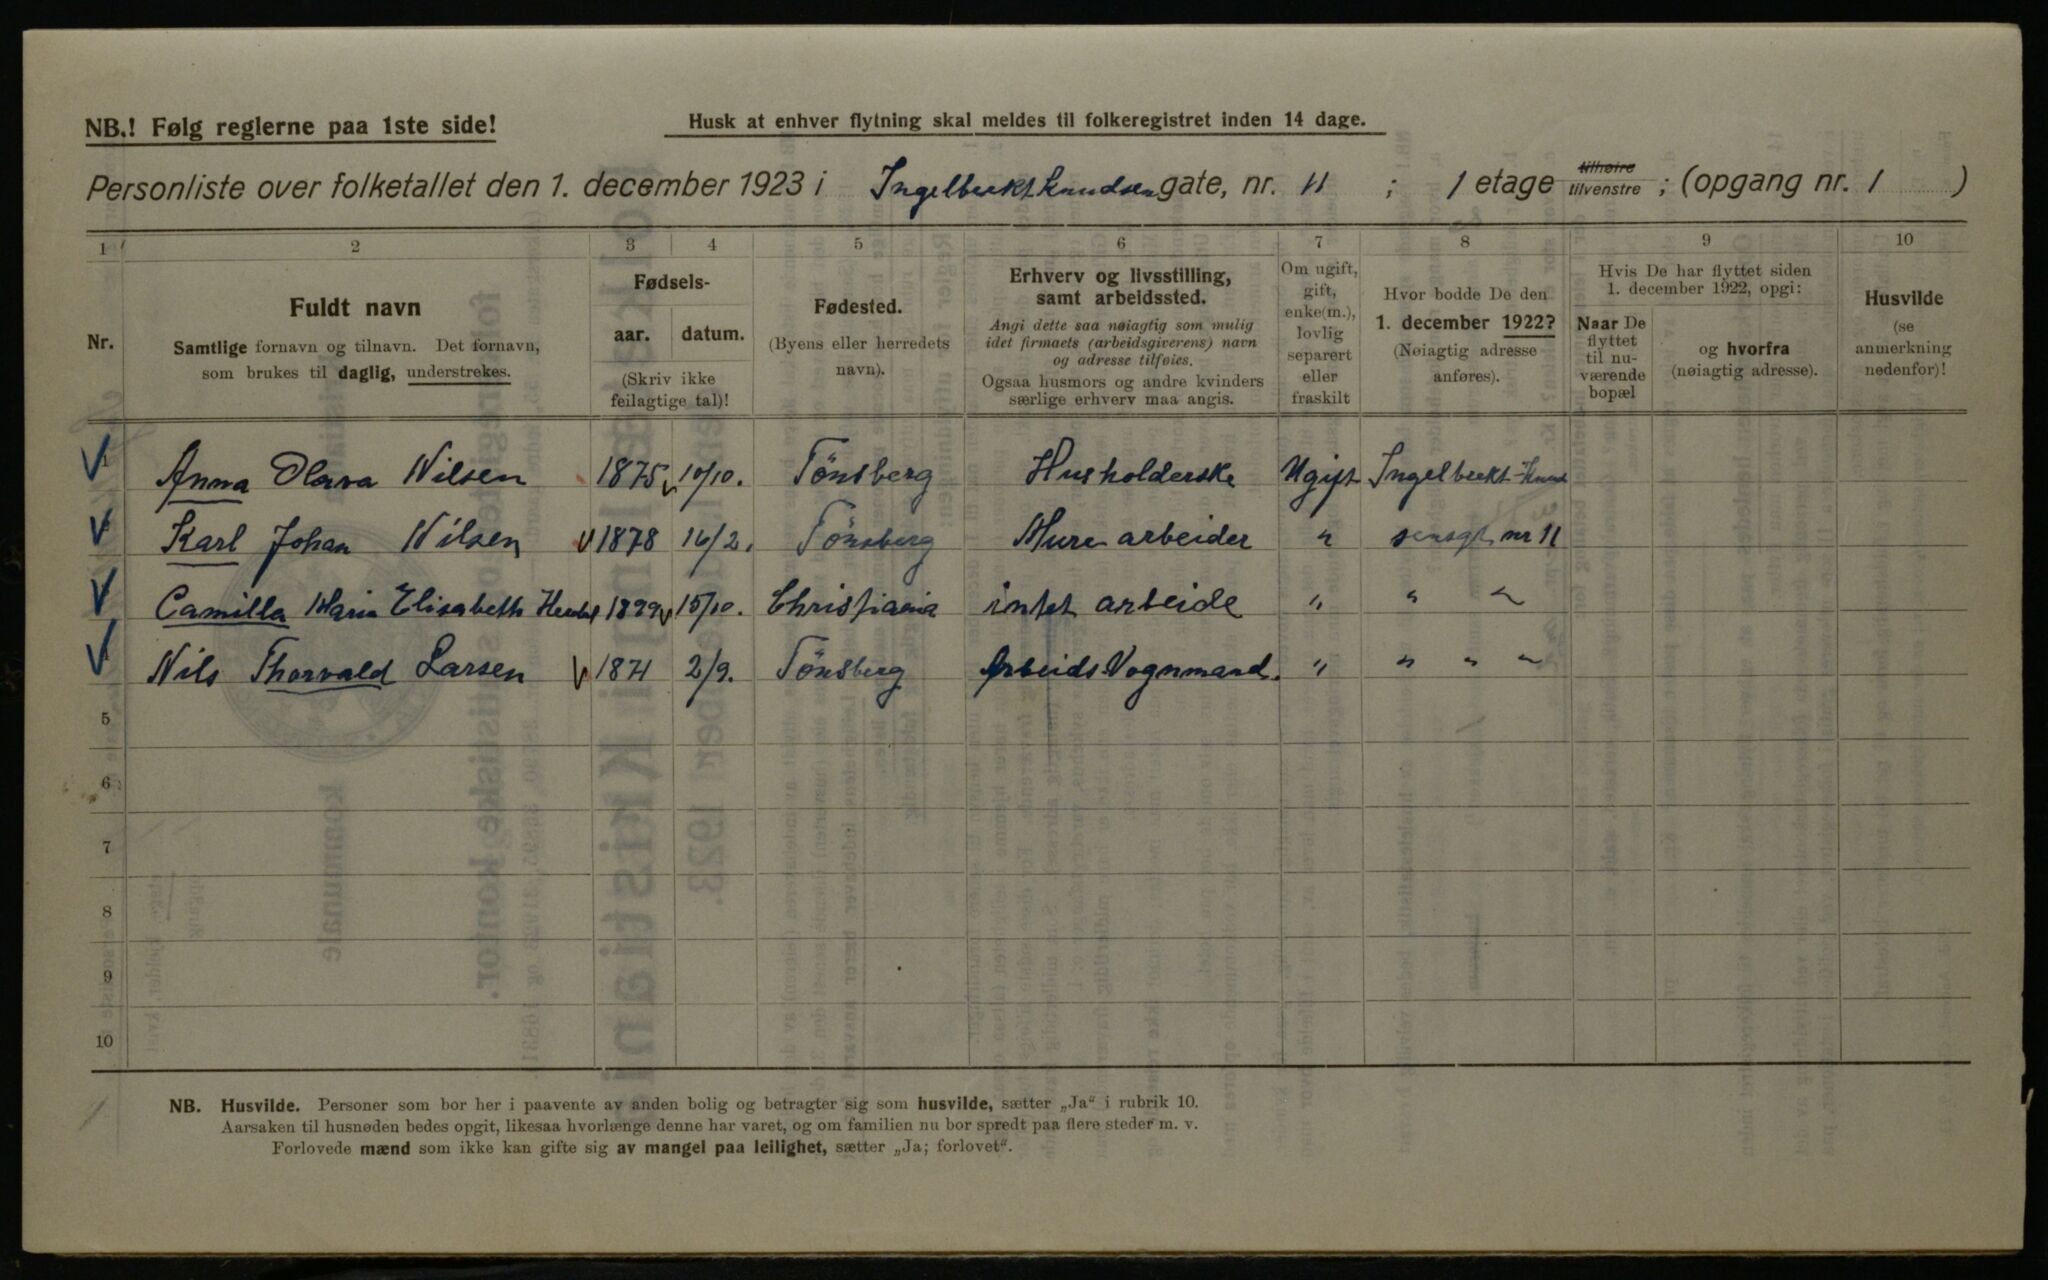 NB.! Følg reglerne paa 1ste side!
Husk at enhver flytning skal meldes til folkeregistret inden 14 dage.
Personliste over folketallet den 1. december 1923 i Ingelbrekt Knudsen gate, nr. 11 ; 1 etage tilhøire tilvenstre ; (opgang nr. 1 )
1 2 3 4 5 6 7 8 9 10
Nr.
Fuldt navn
Samtlige fornavn og tilnavn. Det fornavn,
som brukes til daglig, understrekes.
Fødsels-
aar. datum.
(Skriv ikke
feilagtige tal)!
Fødested.
(Byens eller herredets
navn).
Erhverv og livsstilling,
samt arbeidssted.
Angi dette saa nøiagtig som mulig
idet firmaets (arbeidsgiverens) navn
og adresse tilføies.
Ogsaa husmors og andre kvinders
særlige erhverv maa angis.
Om ugift,
gift,
enke(m.),
lovlig
separert
eller
fraskilt
Hvor bodde De den
1. december 1922?
(Nøiagtig adresse
anføres).
Hvis De har flyttet siden
1. december 1922, opgi:
Naar De
flyttet
til nu-
værende
bopæl
og hvorfra
(nøiagtig adresse).
Husvilde
(se
anmerkning
nedenfor)!
Anna Olava Nilsen 1875 10/10. Tönsberg Husholderske Ugift Ingelbrekt-Knud
Karl Johan Nilsen 1878 16/2. Tönsberg Mure arbeider " sensgt nr 11
Camilla Maria Elisabeth 1899 15/10. Christiania intet arbeide " " "
Nils Thorvald Larsen 1871 2/9. Tönsberg Arbeids Vognmand. " " " "
5
6
7
8
9
10
NB. Husvilde. Personer som bor her i paavente av anden bolig og betragter sig som husvilde, sætter „Ja" i rubrik 10.
Aarsaken til husnøden bedes opgit, likesaa hvorlænge denne har varet, og om familien nu bor spredt paa flere steder m. v.
Forlovede mænd som ikke kan gifte sig av mangel paa leilighet, sætter „Ja; forlovet".